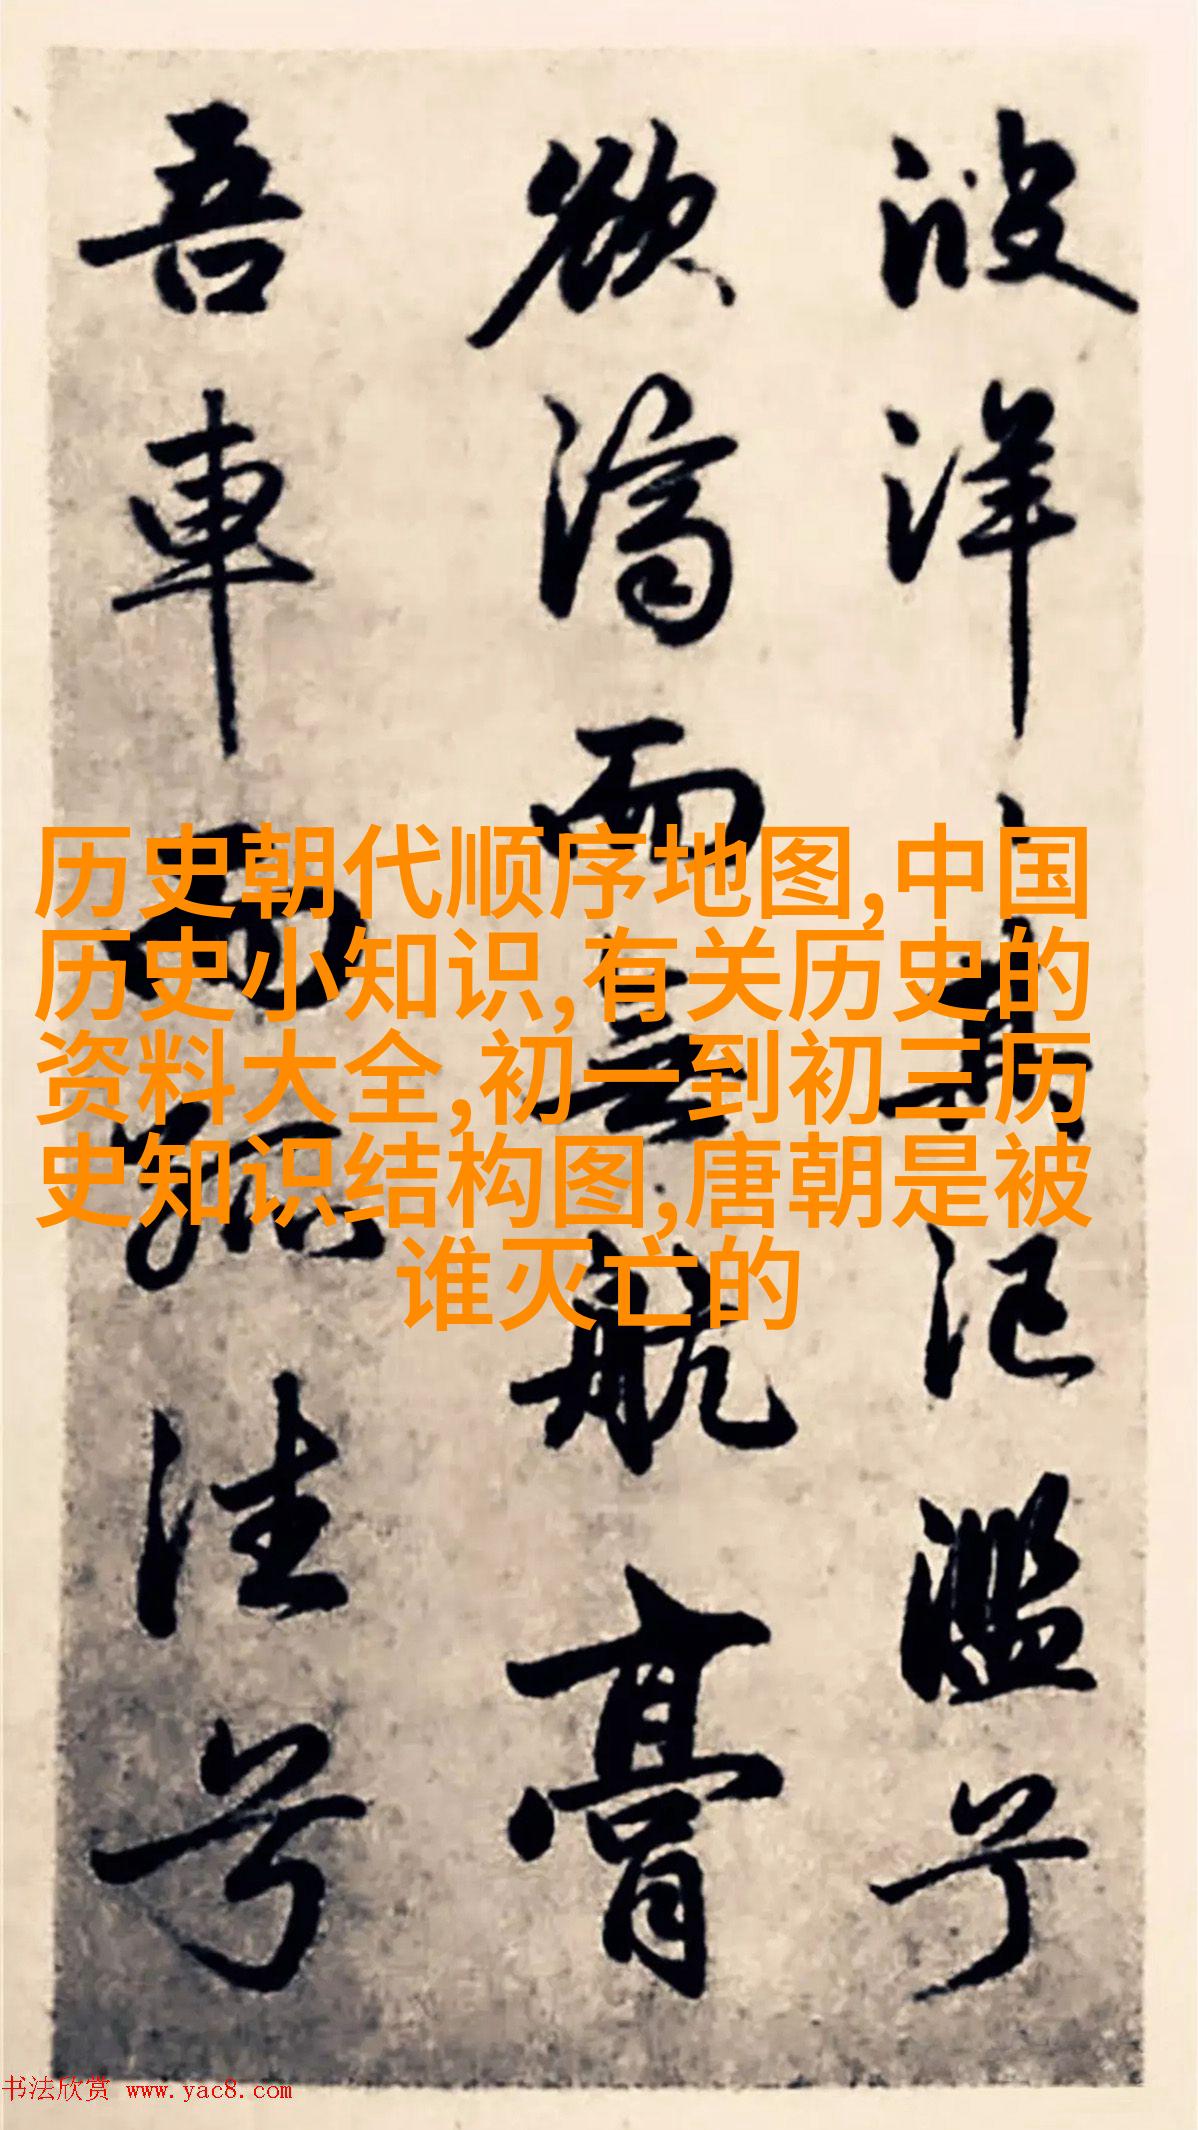 波洋其汜濫兮
欲濟而無航膏
吾車而孤往兮
历史朝代顺序地图,中国
历史小知识,有关历史的
资料大全,初一到初三历
史知识结构图,唐朝是被
谁灭亡的
书法欣赏 www.yac8.com